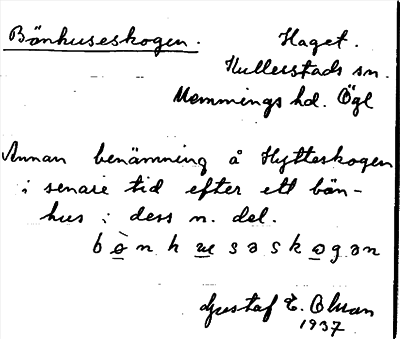 Bönhuseskogen. Haget.
Hullerstads sn.
Memmings hd. Ögl
Annan benämning å Hytteskogen
i senare tid efter ett bön-
hus i dess n. del.
b ò n h u s ə s k o g a n
Gustaf E. Olsson
1937